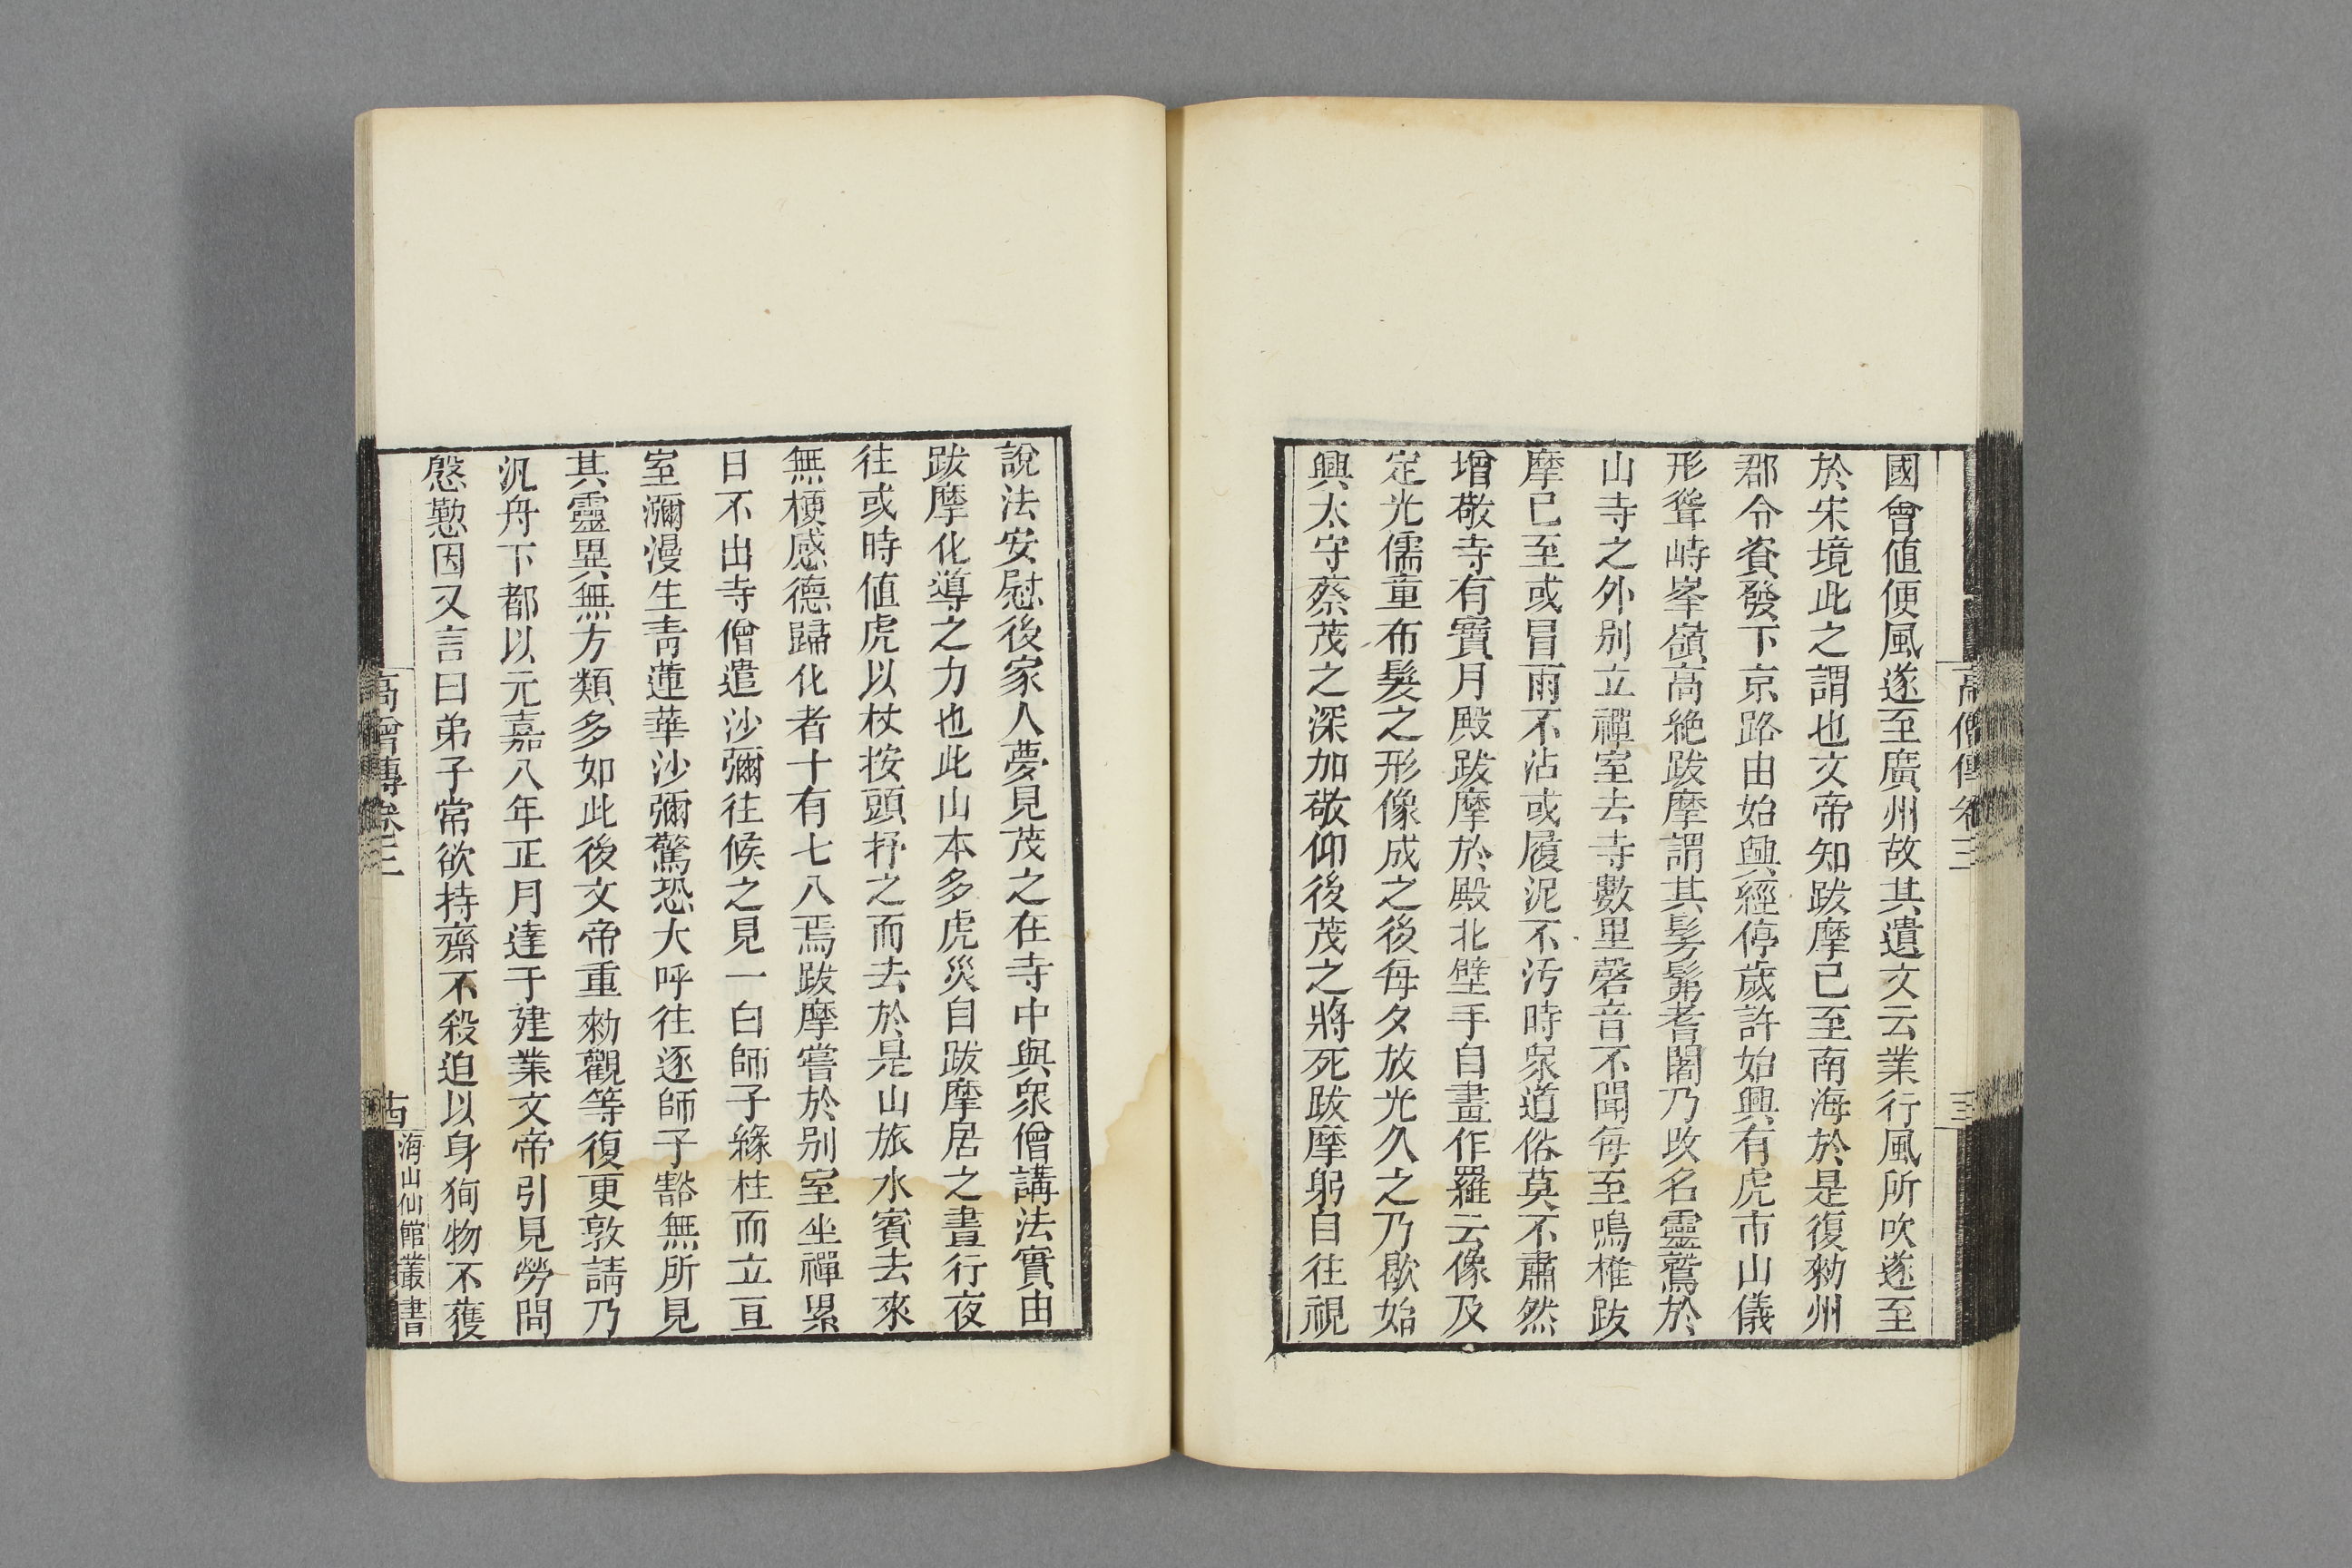 高僧傳卷三
三
國會值便風遂至廣州故其遺文云業行風所吹遂至
於宋境此之謂也文帝知跋摩已至南海於是復勑州
郡令資發下京路由始興經停歲許始興有虎市山儀
形聳峙峯嶺高絶跋摩謂其髣髴耆闍乃改名靈鷲於
山寺之外别立禪室去寺數里磬音不聞每至鳴椎跋
摩已至或冒雨不沾或履泥不污時眾道俗莫不肅然
增敬寺有寶月殿跋摩於殿北壁手自畫作羅云像及
定光儒童布髮之形像成之後每夕放光久之乃歇始
興太守蔡茂之深加敬仰後茂之將死跋摩躬自往視
說法安慰後家人夢見茂之在寺中與眾僧講法實由
跋摩化導之力也此山本多虎災自跋摩居之晝行夜
往或時值虎以杖按頭抒之而去於是山旅水賓去來
無梗感德歸化者十有七八焉跋摩嘗於别室坐禪累
日不出寺僧遣沙彌往候之見一白師子緣柱而立亘
室瀰漫生青蓮華沙彌驚恐大呼往逐師子豁無所見
其靈異無方類多如此後文帝重勑觀等復更敦請乃
汎舟下都以元嘉八年正月達于建業文帝引見勞問
慇懃因又言曰弟子常欲持齋不殺迫以身狥物不獲
高僧傳卷三
古
海山仙館叢書